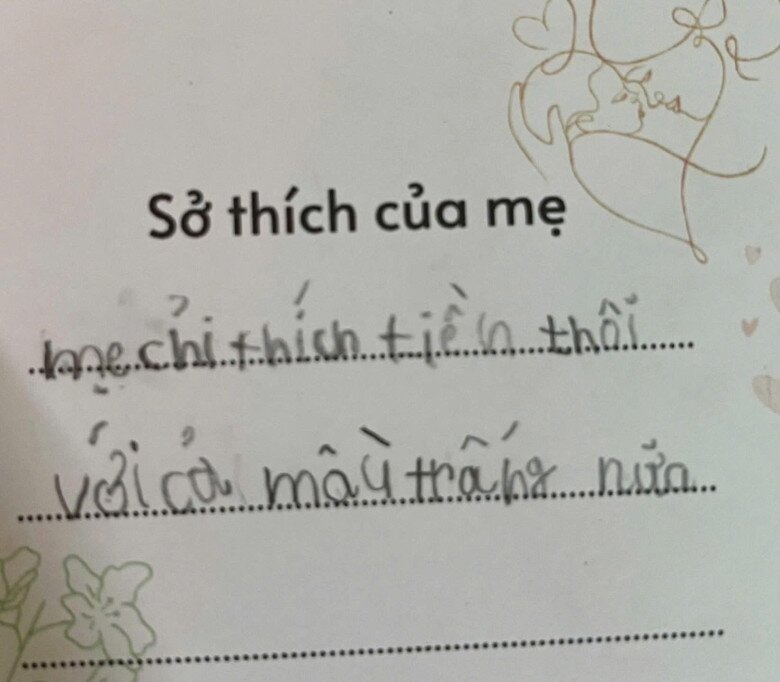 Sở thích của mẹ
mẹ chỉ thích tiền thôi
với cả mâù trấng nữa